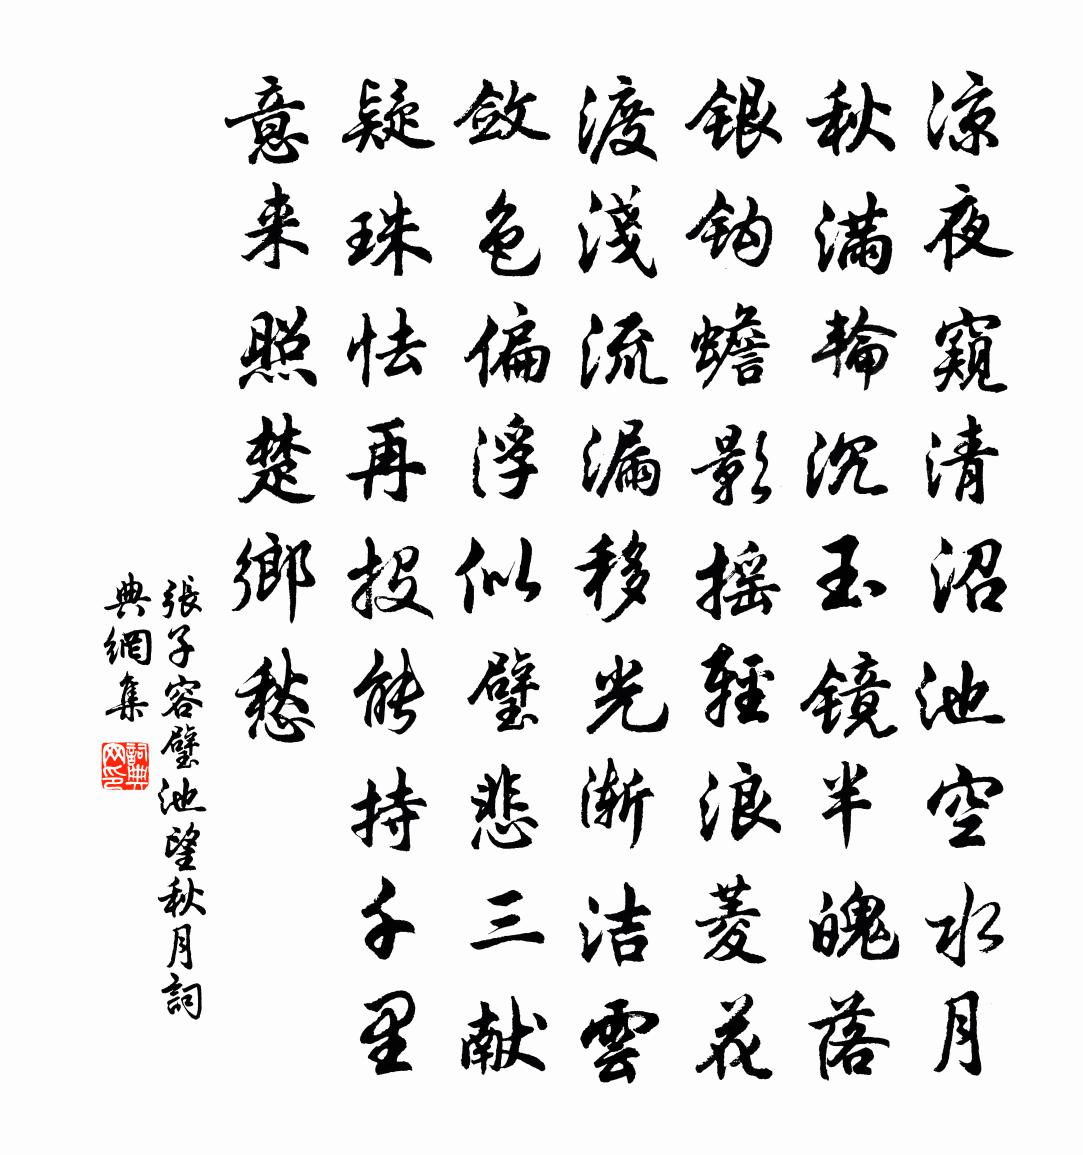 涼夜窺清沼池空水月
秋滿輪沉玉镜半魄落
銀鈎蟾影摇輕浪菱花
渡淺流漏移光渐洁雲
斂色偏浮似璧悲三献
疑珠怯再投能持千里
意来照楚鄉愁
張子容璧池望秋月詞
典網集
詞典网印